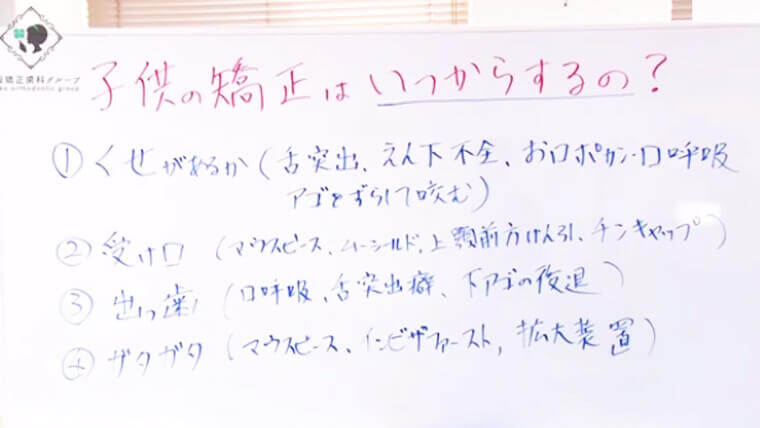 矯正歯科グループ
orthodontic group
子供の矯正はいつからするの?
① くせがあるか(舌突出、えん下不全、お口ポカン・口呼吸
アゴをずらして咬む)
② 受け口(マウスピース、ムーシールド、上顎前方けん引、チンキャップ)
③ 出っ歯(口呼吸、舌突出癖、下アゴの後退)
④ ガタガタ(マウスピース、インビザファースト、拡大装置)